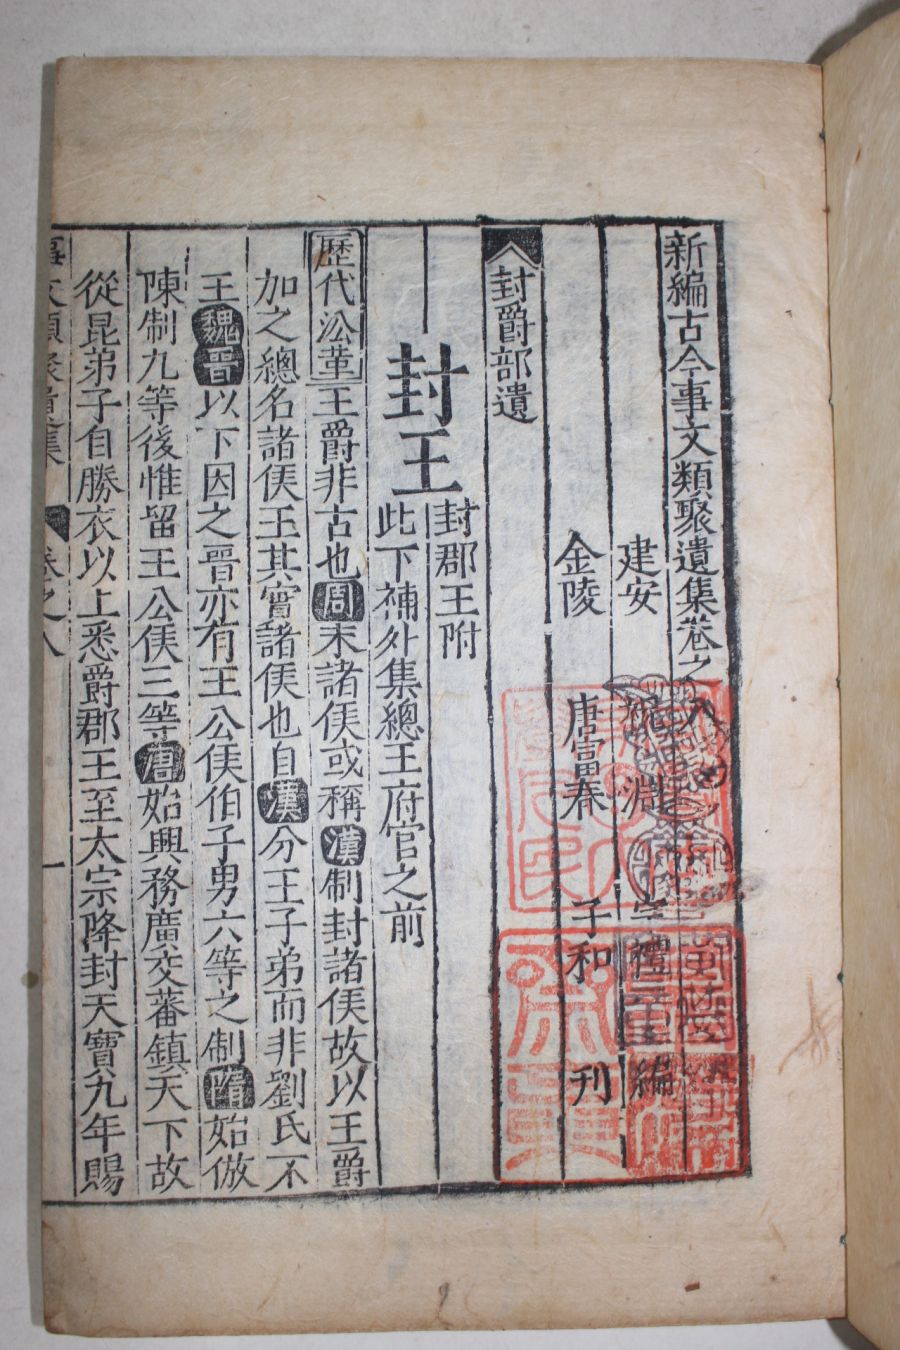 新編古今事文類聚遺集卷之八
建安 祝淵 宗禮 編
金陵 唐富春 子和 刊
封爵部遺
封王 封郡王附
此下補外集總王府官之前
歷代沿革王爵非古也周末諸侯或稱漢制封諸侯故以王爵
加之總名諸侯王其實諸侯也自漢分王子弟而非劉氏不
王魏晉以下因之晉亦有王公侯伯子男六等之制隋始倣
陳制九等後惟留王公侯三等唐始興務廣交蕃鎮天下故
從昆弟子自勝衣以上悉爵郡王至太宗降封天寶九年賜
卷之八 一